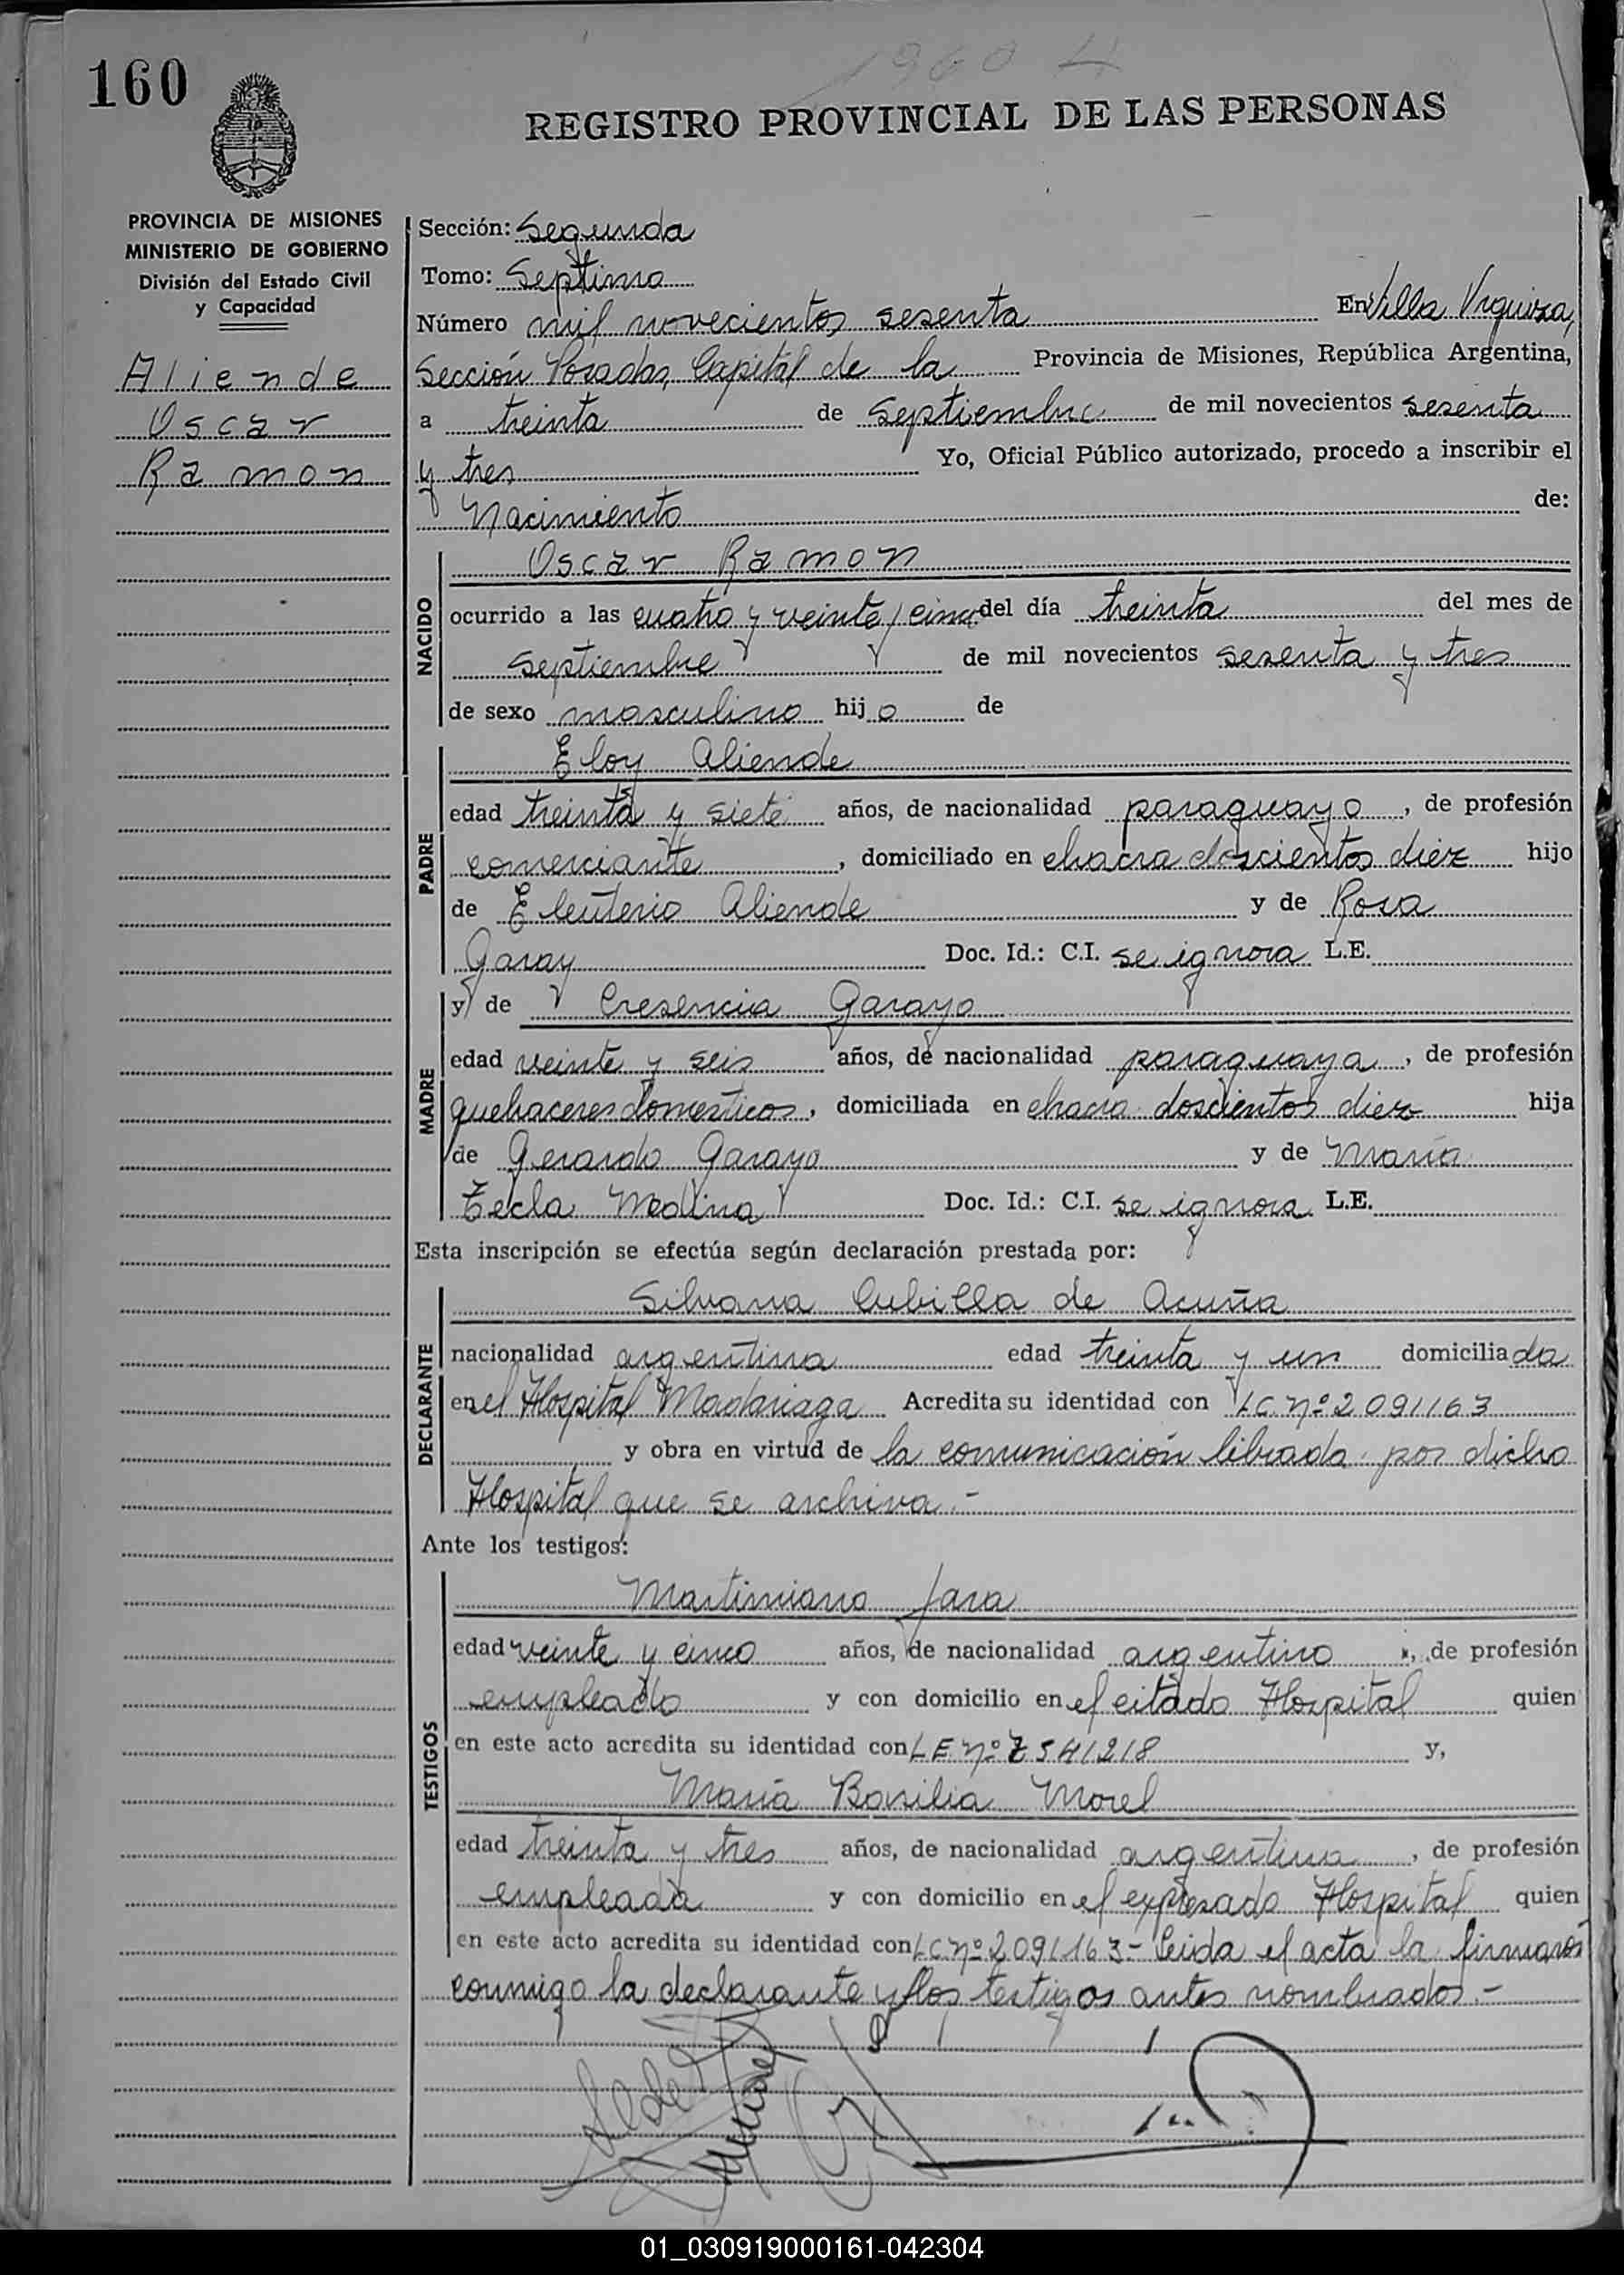 1960 4
160
REGISTRO PROVINCIAL DE LAS PERSONAS
PROVINCIA DE MISIONES
MINISTERIO DE GOBIERNO
División del Estado Civil
y Capacidad
Aliende
Oscar
Ramon
Sección: Segunda
Tomo: Septimo
Número mil novecientos sesenta En Villa Urquiza,
Sección Posadas, Capital de la Provincia de Misiones, República Argentina,
a treinta de Septiembre de mil novecientos sesenta
y tres Yo, Oficial Público autorizado, procedo a inscribir el
Nacimiento de:
NACIDO
Oscar Ramon
ocurrido a las cuatro y veinte y cinco del día treinta del mes de
septiembre de mil novecientos sesenta y tres
de sexo masculino hijo de
PADRE
Eloy Aliende
edad treinta y siete años, de nacionalidad paraguayo, de profesión
comerciante, domiciliado en chacra doscientos diez hijo
de Eleuterio Aliende y de Rosa
Garay Doc. Id.: C.I. se ignora L.E.
MADRE
y de Cresencia Garayo
edad veinte y seis años, de nacionalidad paraguaya, de profesión
quehaceres domesticos, domiciliada en chacra doscientos diez hija
de Gerardo Garayo y de María
Tecla Medina Doc. Id.: C.I. se ignora L.E.
Esta inscripción se efectúa según declaración prestada por:
DECLARANTE
Silvana Cubilla de Acuña
nacionalidad argentina edad treinta y un domiciliada
en el Hospital Madariaga Acredita su identidad con L.C. nº 2091163
y obra en virtud de la comunicación librada por dicho
Hospital que se archiva.-
Ante los testigos:
TESTIGOS
Martimiano Jara
edad veinte y cinco años, de nacionalidad argentino, de profesión
empleado y con domicilio en el citado Hospital quien
en este acto acredita su identidad con L.E. nº 7541218 y,
María Basilia Morel
edad treinta y tres años, de nacionalidad argentina, de profesión
empleada y con domicilio en el expresado Hospital quien
en este acto acredita su identidad con L.C. nº 2091163- Leida el acta la firmaron
conmigo la declarante y los testigos antes nombrados.-
01_030919000161-042304